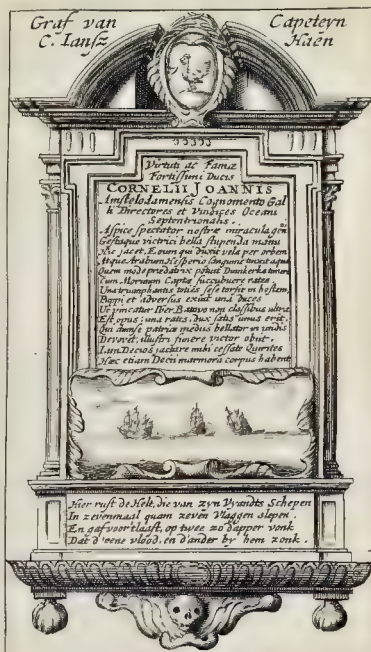 Graf van Capeteyn
C. Iansz Haen
Virtuti ac Famæ
Fortissimi Ducis
CORNELII JOANNIS
Amstelodamensis Cognomento Gal
li Directores et Vindices Oceani
Septentrionalis.
Aspice spectator nostræ miracula
Gestaque victrici bella stupenda manu
Hic jacet, Eoum qui duxit vela per orbem
Atque Arabum Hesperio sanguine tinxit aquas
Quem modo prædatrix potuit Dunkerka timere
Cum Morinum Captæ succubuere rates.
Una triumphantis toties sese torsit in hostem,
Puppi et adversis exiit una duces
Ut vincatur Iber Batavo non classibus ultra
Est opus; una rates, dux satis unus erit.
Qui dum se patriæ medius bellator in undis
Devovet, illustri funere victor obit.
I, un Decios jactare mihi cessate Quirites
Hæc etiam Decii marmora corpus habent.
Hier rust de Helt, die van zyn Vyandts Schepen
In zevenmaal quam zeven Vlaggen slepen.
En gaf voor 't laast, op twee zo dapper vonk
Dat d'eene vlood, en d'ander by hem zonk.